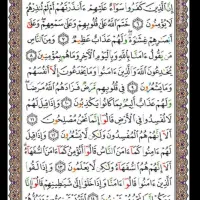 إِنَّ ٱلَّذِينَ كَفَرُوا۟ سَوَآءٌ عَلَيْهِمْ ءَأَنذَرْتَهُمْ أَمْ لَمْ تُنذِرْهُمْ
لَا يُؤْمِنُونَ خَتَمَ ٱللَّهُ عَلَىٰ قُلُوبِهِمْ وَعَلَىٰ سَمْعِهِمْ وَعَلَىٰٓ
أَبْصَٰرِهِمْ غِشَٰوَةٌ وَلَهُمْ عَذَابٌ عَظِيمٌ وَمِنَ ٱلنَّاسِ
مَن يَقُولُ ءَامَنَّا بِٱللَّهِ وَبِٱلْيَوْمِ ٱلْءَاخِرِ وَمَا هُم بِمُؤْمِنِينَ
يُخَٰدِعُونَ ٱللَّهَ وَٱلَّذِينَ ءَامَنُوا۟ وَمَا يَخْدَعُونَ إِلَّآ أَنفُسَهُمْ
وَمَا يَشْعُرُونَ فِى قُلُوبِهِم مَّرَضٌ فَزَادَهُمُ ٱللَّهُ مَرَضًا
وَلَهُمْ عَذَابٌ أَلِيمٌۢ بِمَا كَانُوا۟ يَكْذِبُونَ وَإِذَا قِيلَ لَهُمْ
لَا تُفْسِدُوا۟ فِى ٱلْأَرْضِ قَالُوٓا۟ إِنَّمَا نَحْنُ مُصْلِحُونَ
أَلَآ إِنَّهُمْ هُمُ ٱلْمُفْسِدُونَ وَلَٰكِن لَّا يَشْعُرُونَ وَإِذَا قِيلَ
لَهُمْ ءَامِنُوا۟ كَمَآ ءَامَنَ ٱلنَّاسُ قَالُوٓا۟ أَنُؤْمِنُ كَمَآ ءَامَنَ ٱلسُّفَهَآءُ
أَلَآ إِنَّهُمْ هُمُ ٱلسُّفَهَآءُ وَلَٰكِن لَّا يَعْلَمُونَ وَإِذَا لَقُوا۟
ٱلَّذِينَ ءَامَنُوا۟ قَالُوٓا۟ ءَامَنَّا وَإِذَا خَلَوْا۟ إِلَىٰ شَيَٰطِينِهِمْ قَالُوٓا۟ إِنَّا